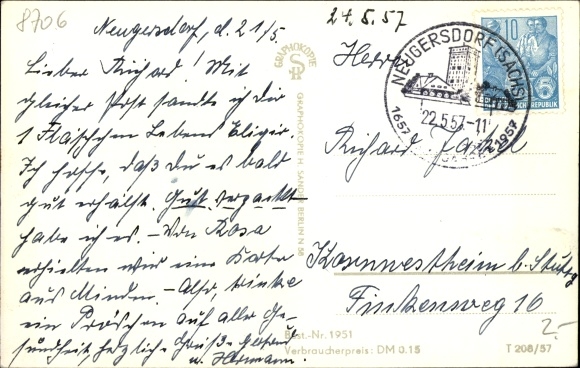 8706
Neugersdorf, d. 21/5.
Lieber Richard! Mit
gleicher Post sandte ich dir
1 Fläschchen Lebens Elixier.
Ich hoffe, daß du es bald
gut erhälst. Gut verpackt
habe ich es. – Von Rosa
erhielten wir eine Karte
aus Minden. – Also, trinke
ein Pröschen auf aller Ge-
sundheit, herzliche Grüße
u. Hermann.
GRAPHOKOPIE
GRAPHOKOPIE H. SANDER BERLIN N 58
Best.-Nr. 1951
Verbraucherpreis: DM 0.15
24.5.57
Herrn
Richard
Kornwestheim b. Stuttg
Finkenweg 16
2.-
T 208/57
NEUGERSDORF (SACHS)
22.5.57.-11
1657 1957
10
REPUBLIK